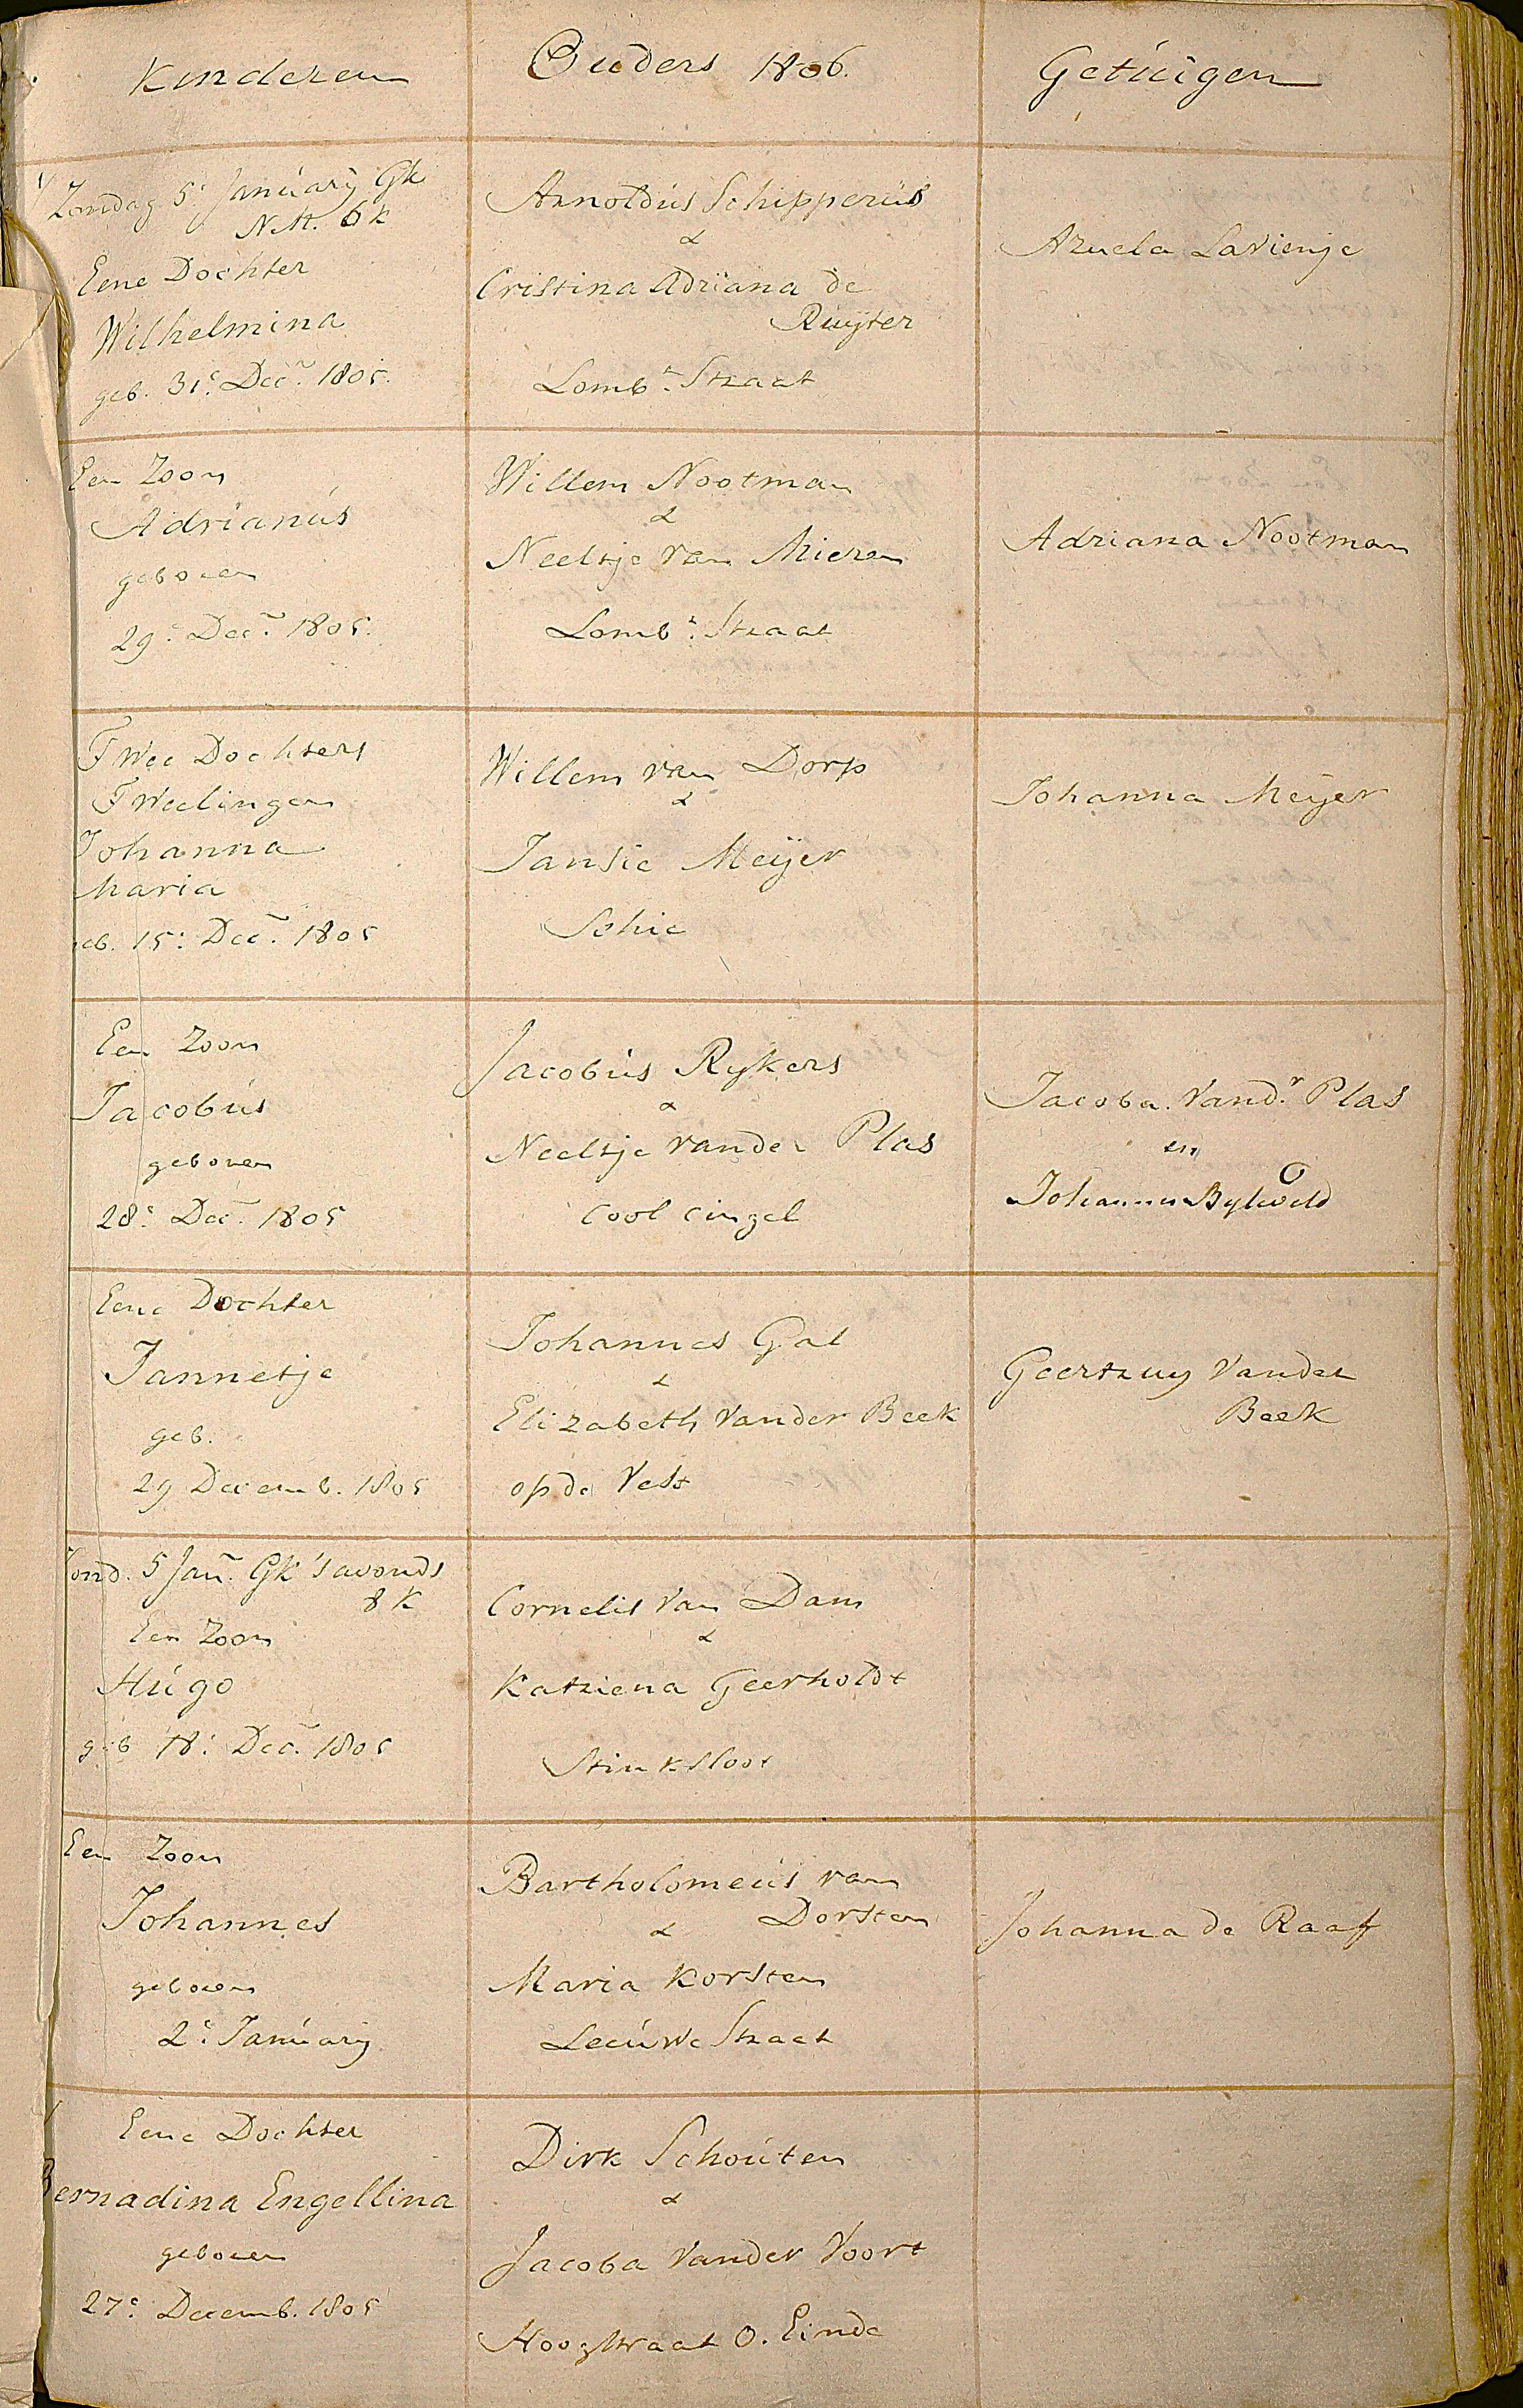 Kinderen
Ouders 1806.
Getuigen
Zondag 5e January Gk
N.M. 6 k
Eene Dochter
Wilhelmina
geb. 31e Decr 1805.
Arnoldus Schipperus
&
Cristina Adriana de
Ruyter
Lombt Straat
Lavienje
Een Zoon
Adrianus
geboren
29e Decr 1805.
Willem Nootman
&
Neeltje van Mieren
Lombt Straat
Adriana Nootman
Twee Dochters
Tweelingen
Johanna
Maria
geb. 15e Decr 1805
Willem van Dorp
&
Jansie Meijer
Schie
Johanna Meijer
Een Zoon
Jacobus
geboren
28e Decr 1805
Jacobus Rykers
&
Neeltje vander Plas
Cool cingel
Jacoba. Vandr Plas
en
Johannes Byleveld
Eene Dochter
Jannetje
geb.
29 Decemb. 1805
Johannes Gal
&
Elizabeth Vander Beek
op de Vest
Geertruy Vander
Beek
Zond. 5 Jan. Gk 's avonds
8 K
Een Zoon
Hugo
geb 18e Decr 1805
Cornelis Van Dam
&
Katriena Geerholdt
Stinksloot
Een Zoon
Johannes
geboren
2e January
Bartholomeus van
Dorsten
&
Maria Korsten
Leeuwe Straat
Johanna de Raaf
Eene Dochter
Bernadina Engellina
geboren
27e Decemb. 1805
Dirk Schouten
&
Jacoba Vander Voort
Hoogstraat O. Einde